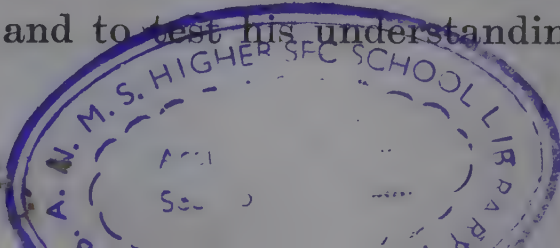 and to test his understandin
A. N. M. S. HIGHER SEC SCHOOL LIBRARY